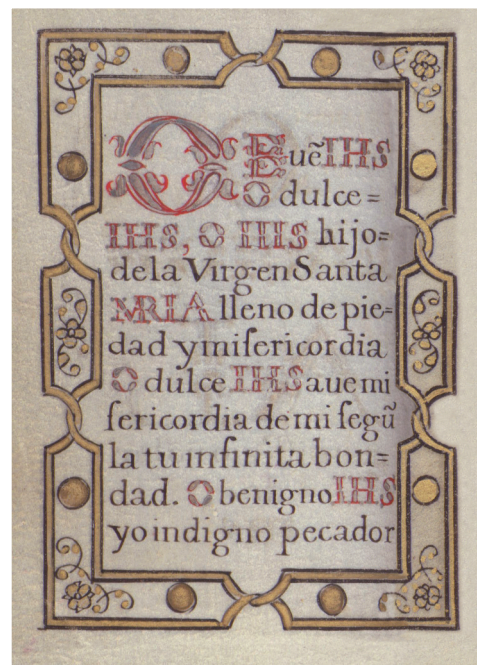 O Buẽ IHS
O dulce=
IHS, O IHS hijo=
de la Virgen Santa
MRIA lleno de pie=
dad y miſericordia
O dulce IHS aue mi
ſericordia de mi ſegũ
la tu infinita bon=
dad. O benigno IHS
yo indigno pecador